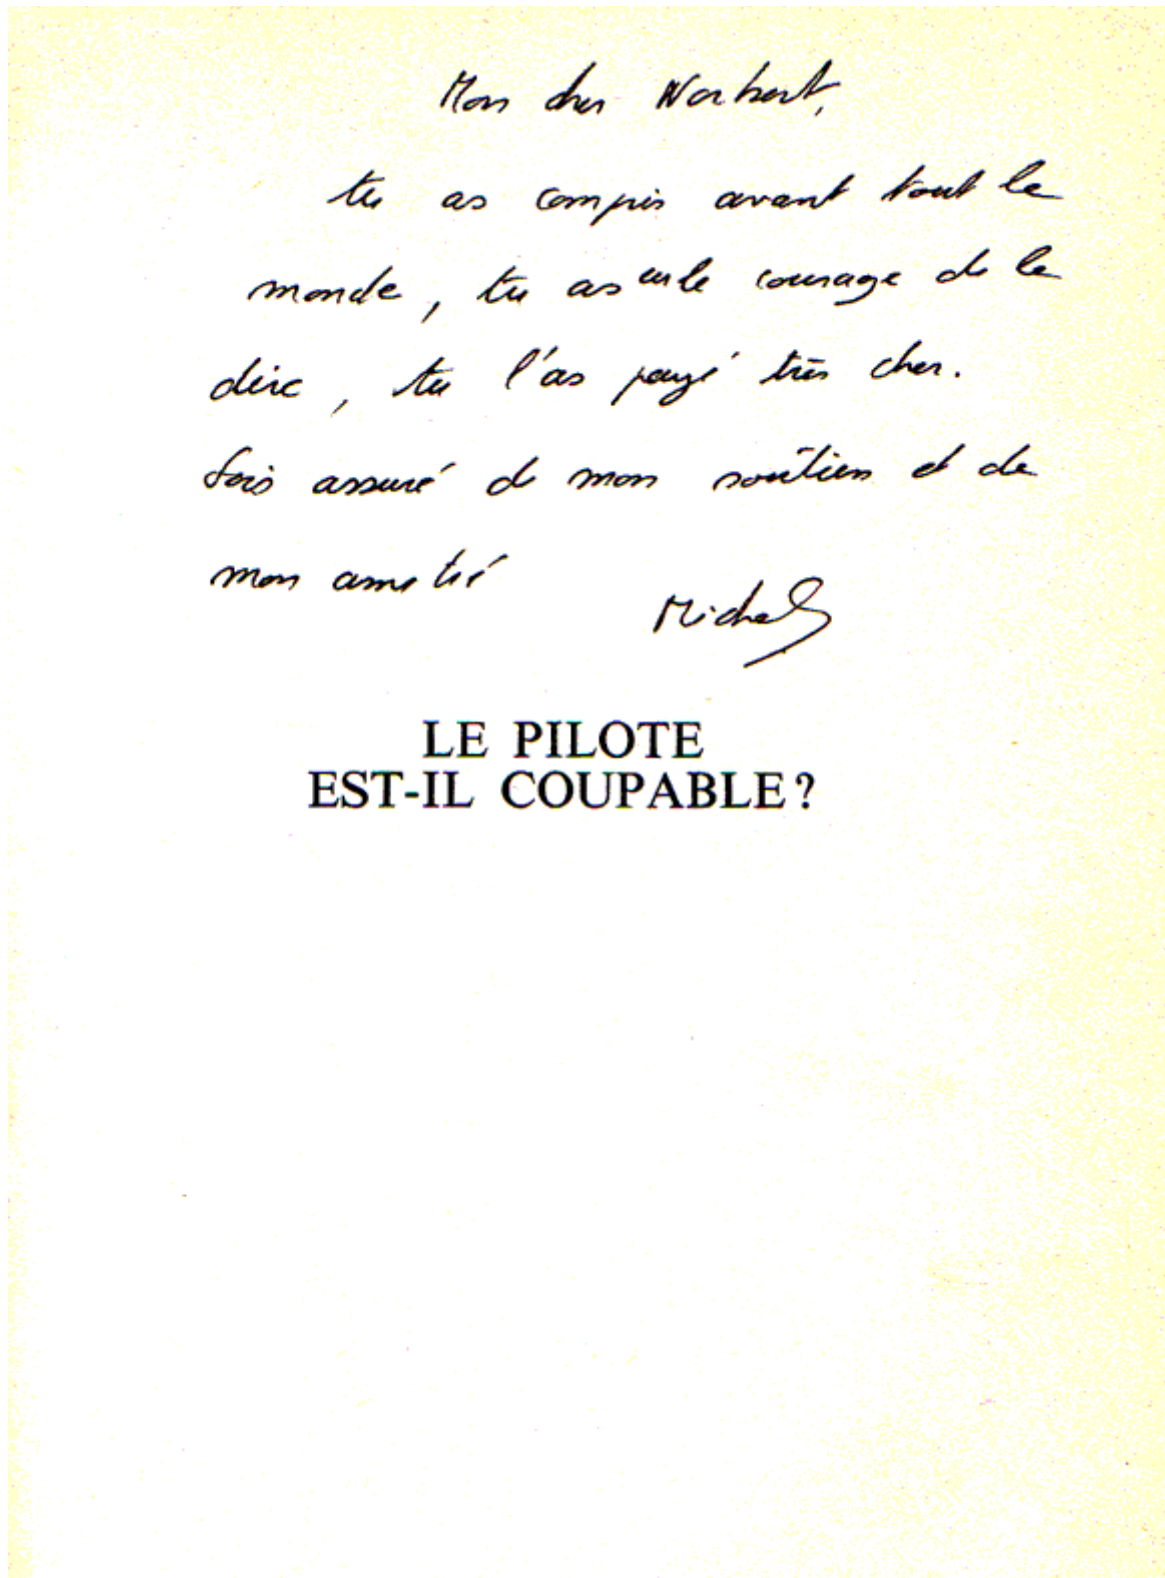 Mon cher Norbert,
tu as compris avant tout le
monde, tu as eu le courage de le
dire, tu l'as payé très cher.
Sois assuré de mon soutien et de
mon amitié
Michel
LE PILOTE
EST-IL COUPABLE?